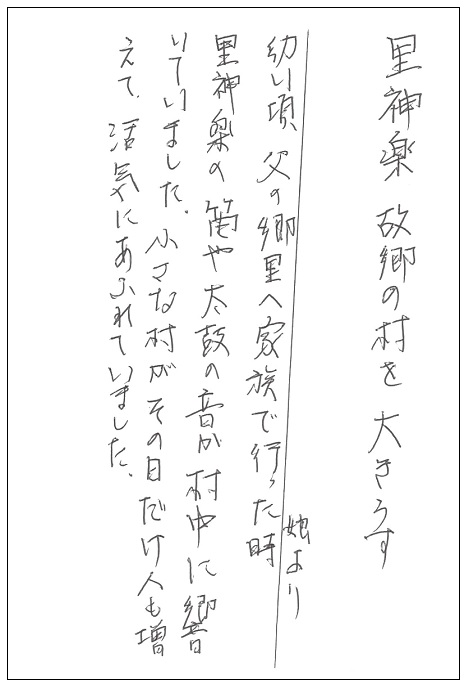 里神楽 故郷の村を 大きうす
娘より
幼い頃、父の郷里へ家族で行った時
里神楽の笛や太鼓の音が村中に響
いていました。小さな村がその日だけ人も増
えて、活気にあふれていました。